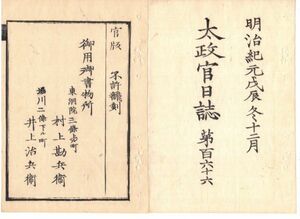 明治紀元戊辰冬十二月
太政官日誌 第百六十六
官版 不許翻刻
御用御書物所
東洞院三條上ル町
村上勘兵衞
堀川二條下ル町
井上治兵衞